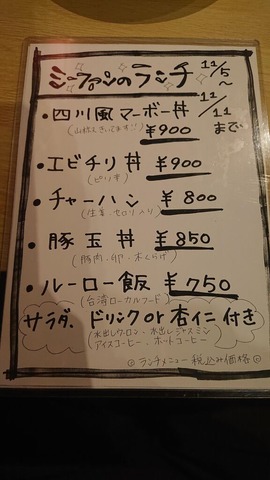 ミーファンのランチ 11/5〜
11/11まで
・四川風マーボー丼
(山椒きいてます!!) ¥900
・エビチリ丼 ¥900
(ピリ辛)
・チャーハン ¥800
(生姜・セロリ入り)
・豚玉丼 ¥850
(豚肉・卵・木くらげ)
・ルーロー飯 ¥750
(台湾ローカルフード)
サラダ、ドリンク or 杏仁 付き
(水出しウーロン・水出しジャスミン
アイスコーヒー・ホットコーヒー)
◎ランチメニュー 税込み価格◎